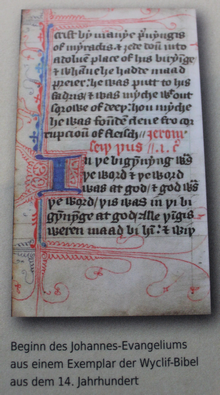 and by manye þinges
of myraclis / & zede doun into
a doluen place of his biryinge
& whanne he hadde maad
preier : he was put to his
fadris / & was myche wiþout
sorowe of deeþ / hou myche
he was founde clene fro cor
rupcioun of fleisch /
In þe bigynnyng was
þe word & þe word
was at god / & god was
þe word / þis was in þe bi
gynnynge at god / alle þingis
weren maad bi hym : & wiþ
Beginn des Johannes-Evangeliums
aus einem Exemplar der Wyclif-Bibel
aus dem 14. Jahrhundert